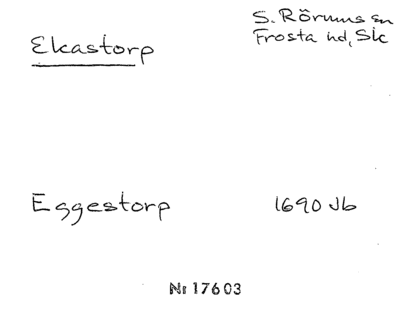 Ekastorp
S. Rörums sn
Frosta hd, Sk
Eggestorp
1690 Jb
Nr 17603